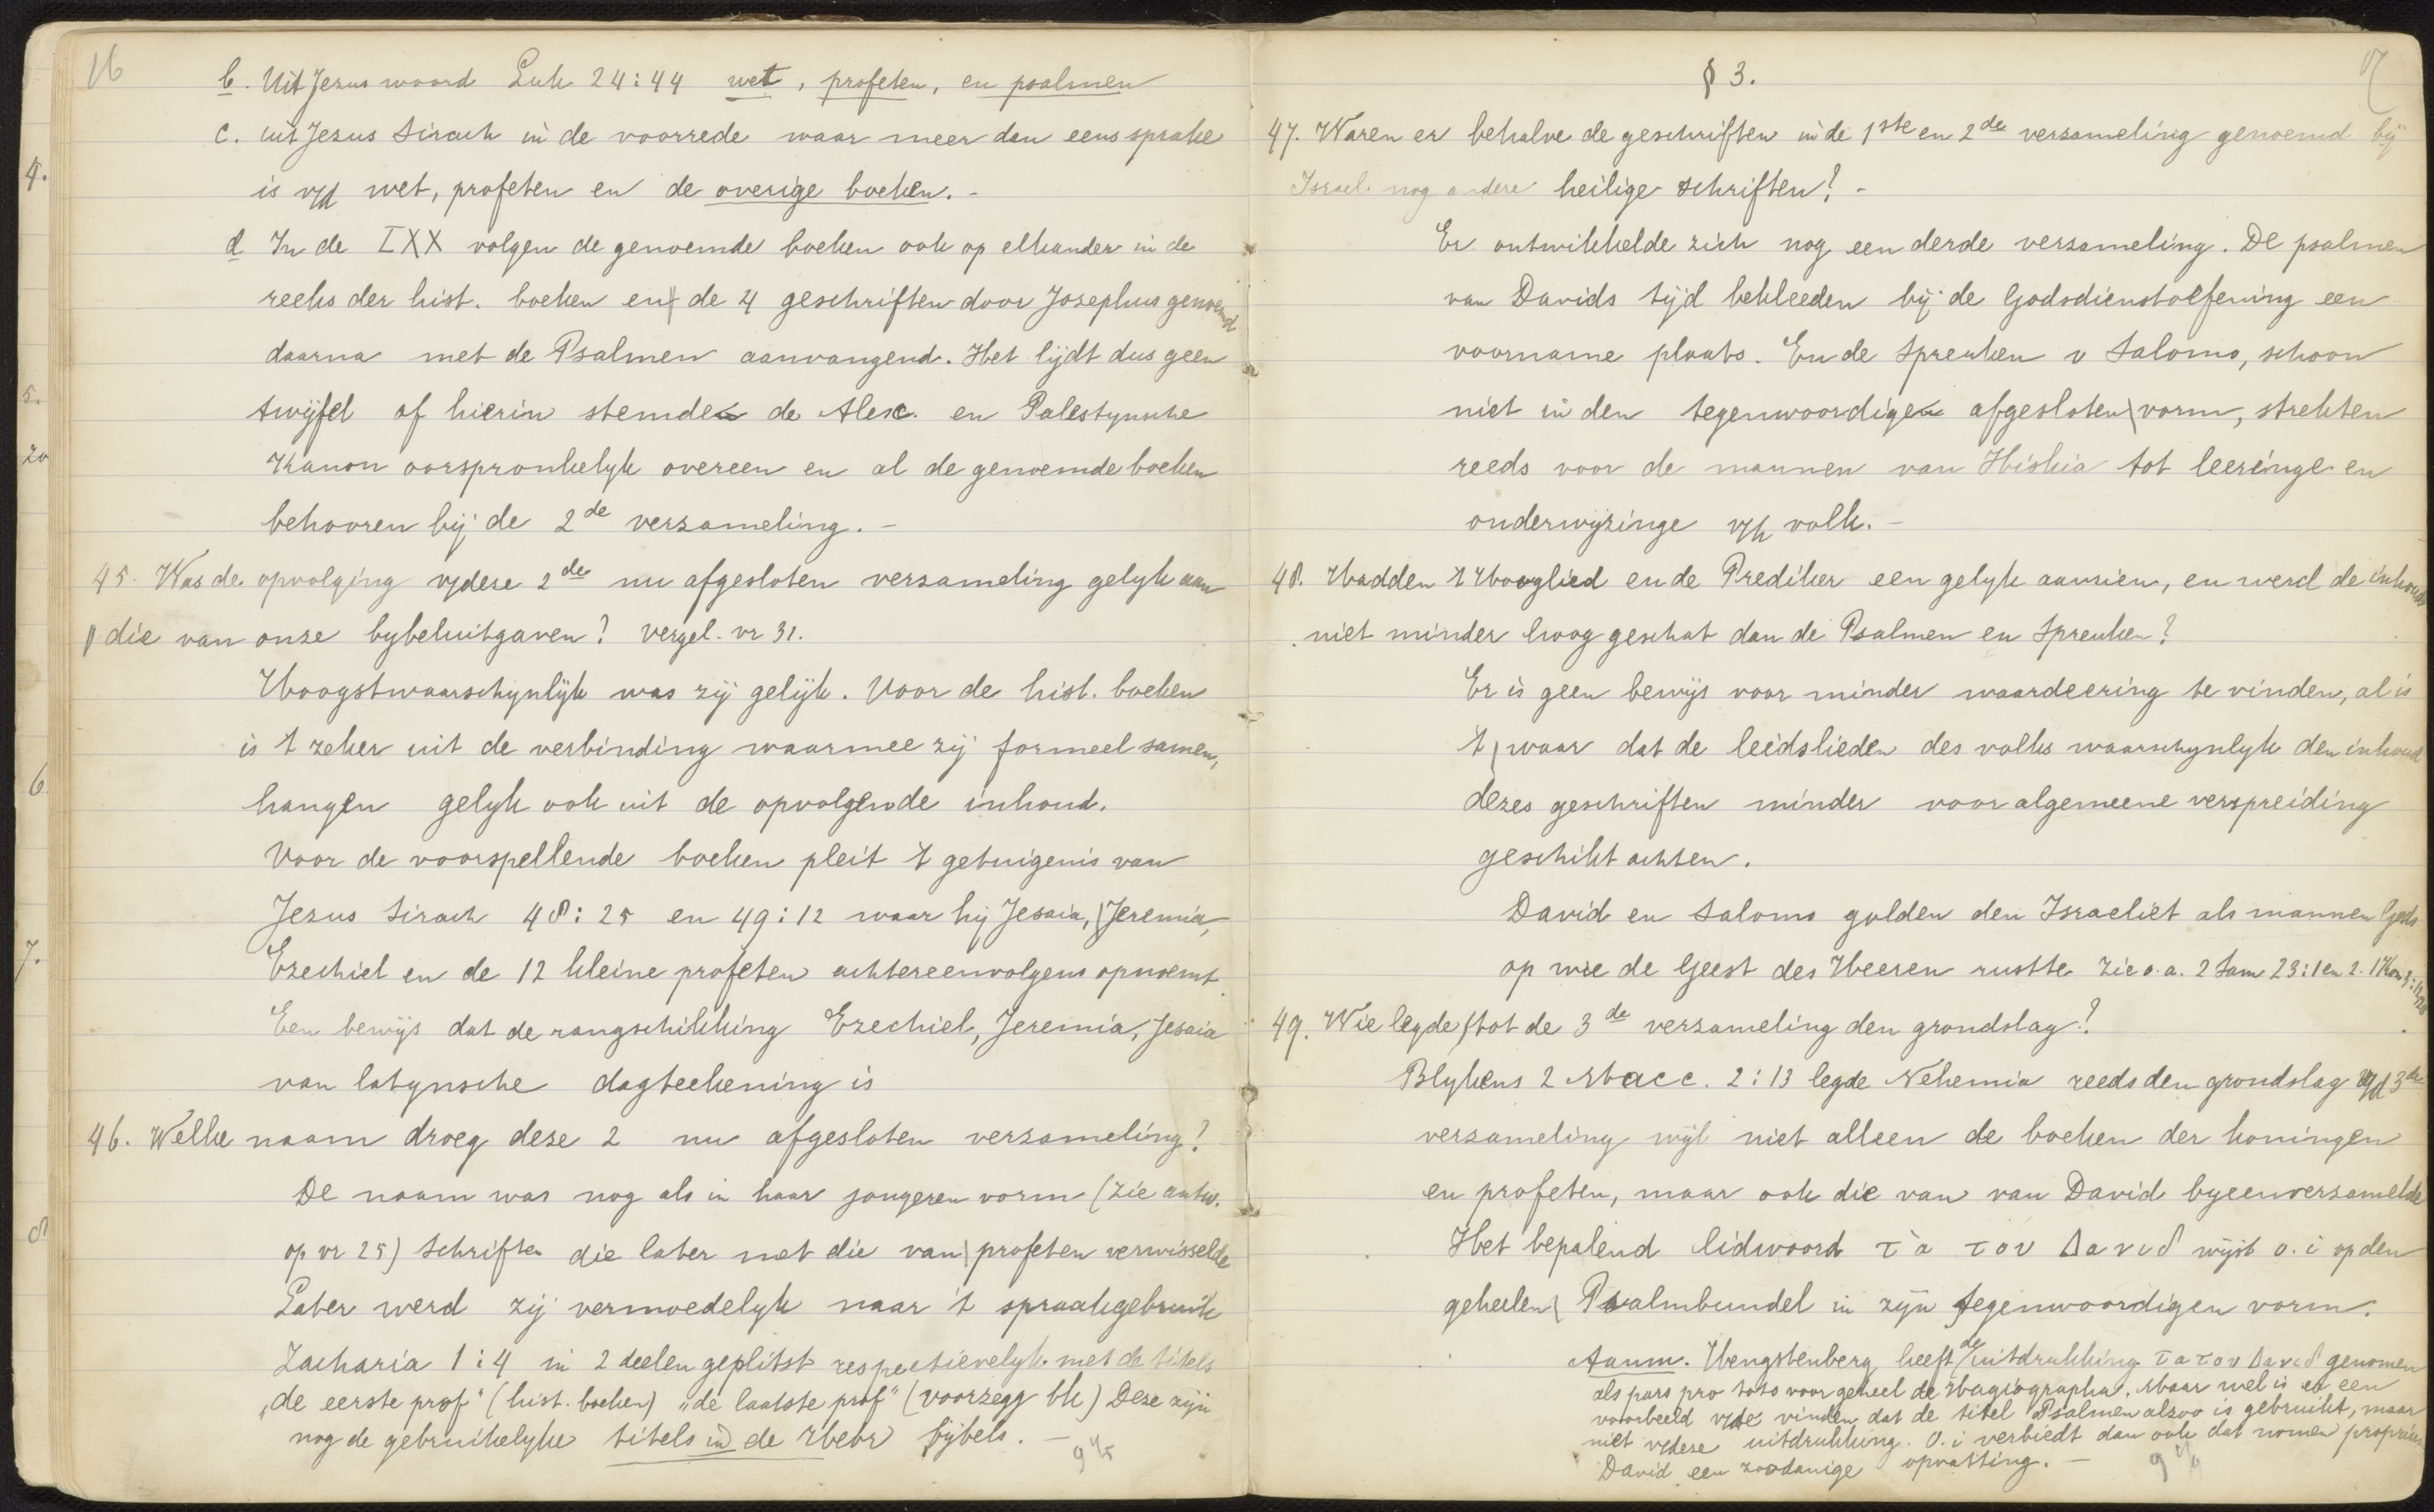 16
b. Uit Jezus woord Luk 24:44 wet, profeten, en psalmen
c. uit Jezus Sirach in de voorrede waar meer dan eens sprake
is v/d wet, profeten en de overige boeken. -
d In de LXX volgen de genoemde boeken ook op elkander in de
reeks der hist. boeken en de 4 geschriften door Josephus genoemd
daarna met de Psalmen aanvangend. Het lijdt dus geen
twijfel of hierin stemde de Alex. en Palestynsche
Kanon oorspronkelyk overeen en al de genoemde boeken
behooren bij de 2de verzameling. -
45. Was de opvolging v/deze 2de nu afgesloten verzameling gelyk aan
die van onze bybeluitgaven? vergel. vr 31.
Hoogstwaarschynlijk was zij gelijk. Voor de hist. boeken
is 't zeker uit de verbinding waarmee zij formeel samen,
hangen gelyk ook uit de opvolgende inhoud.
Voor de voorspellende boeken pleit 't getuigenis van
Jezus Sirach 48:25 en 49:12 waar hij Jesaia, Jeremia,
Ezechiel en de 12 kleine profeten achtereenvolgens opnoemt
Een bewijs dat de rangschikking Ezechiel, Jeremia, Jesaia
van latynsche dagteekening is
46. Welke naam droeg deze 2 nu afgesloten verzameling?
De naam was nog als in haar jongeren vorm (zie antw.
op vr 25) Schriften die later met die van profeten verwisselde
Later werd zij vermoedelyk naar 't spraakgebruik
Zacharia 1:4 in 2 deelen geplitst respectievelyk met de titels
„de eerste prof" (hist. boeken) „de laatste prof" (voorzegg bk) Deze zijn
nog de gebruikelyke titels in de Hebr bijbels. -
4.
5.
20
6
7.
8
§ 3.
47. Waren er behalve de geschriften in de 1ste en 2de verzameling genoemd bij
Israel nog andere heilige schriften? -
Er ontwikkelde zich nog een derde verzameling. De psalmen
van Davids tijd bekleeden bij de Godsdienstoefening een
voorname plaats. En de Spreuken v Salomo, schoon
niet in den tegenwoordigen afgesloten vorm, strekten
reeds voor de mannen van Hiskia tot leeringe en
onderwijzinge v/h volk. -
48. Hadden 't Hooglied en de Prediker een gelyk aanzien, en werd de inhoud
niet minder hoog geschat dan de Psalmen en Spreuken?
Er is geen bewijs voor minder waardeering te vinden, al is
't waar dat de leidslieden des volks waarschynlyk den inhoud
dezes geschriften minder voor algemeene verspreiding
geschikt achten.
David en Salomo golden den Israeliet als mannen Gods
op wie de Geest des Heeren rustte zie o.a. 2 Sam 23:1 en 2. 1 Kon 3:
49. Wie legde tot de 3de verzameling den grondslag?
Blykens 2 Macc. 2:13 legde Nehemia reeds den grondslag v/d 3de
verzameling wijl niet alleen de boeken der koningen
en profeten, maar ook die van van David byeenverzamelde
Het bepalend lidwoord τα του Δαvιδ wijst o.i op den
geheelen Psalmbundel in zijn tegenwoordigen vorm.
Aanm. Hengstenberg heeft de uitdrukking τα του Δαvιδ genomen
als pars pro toto voor geheel de Hagiographa. Maar wel is er een
voorbeeld v/de vinden, dat de titel Psalmen alzoo is gebruikt, maar
niet v/deze uitdrukking. O.i verbiedt dan ook dat nomen proprium
David een zoodanige opvatting. -